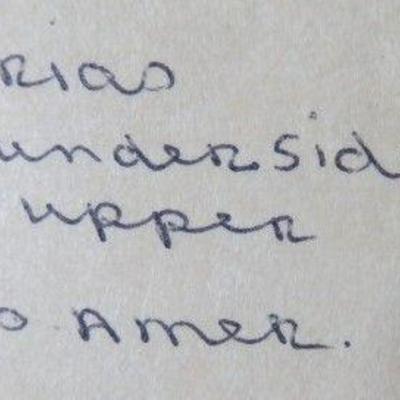 rias
undersid
upper
o Amer.